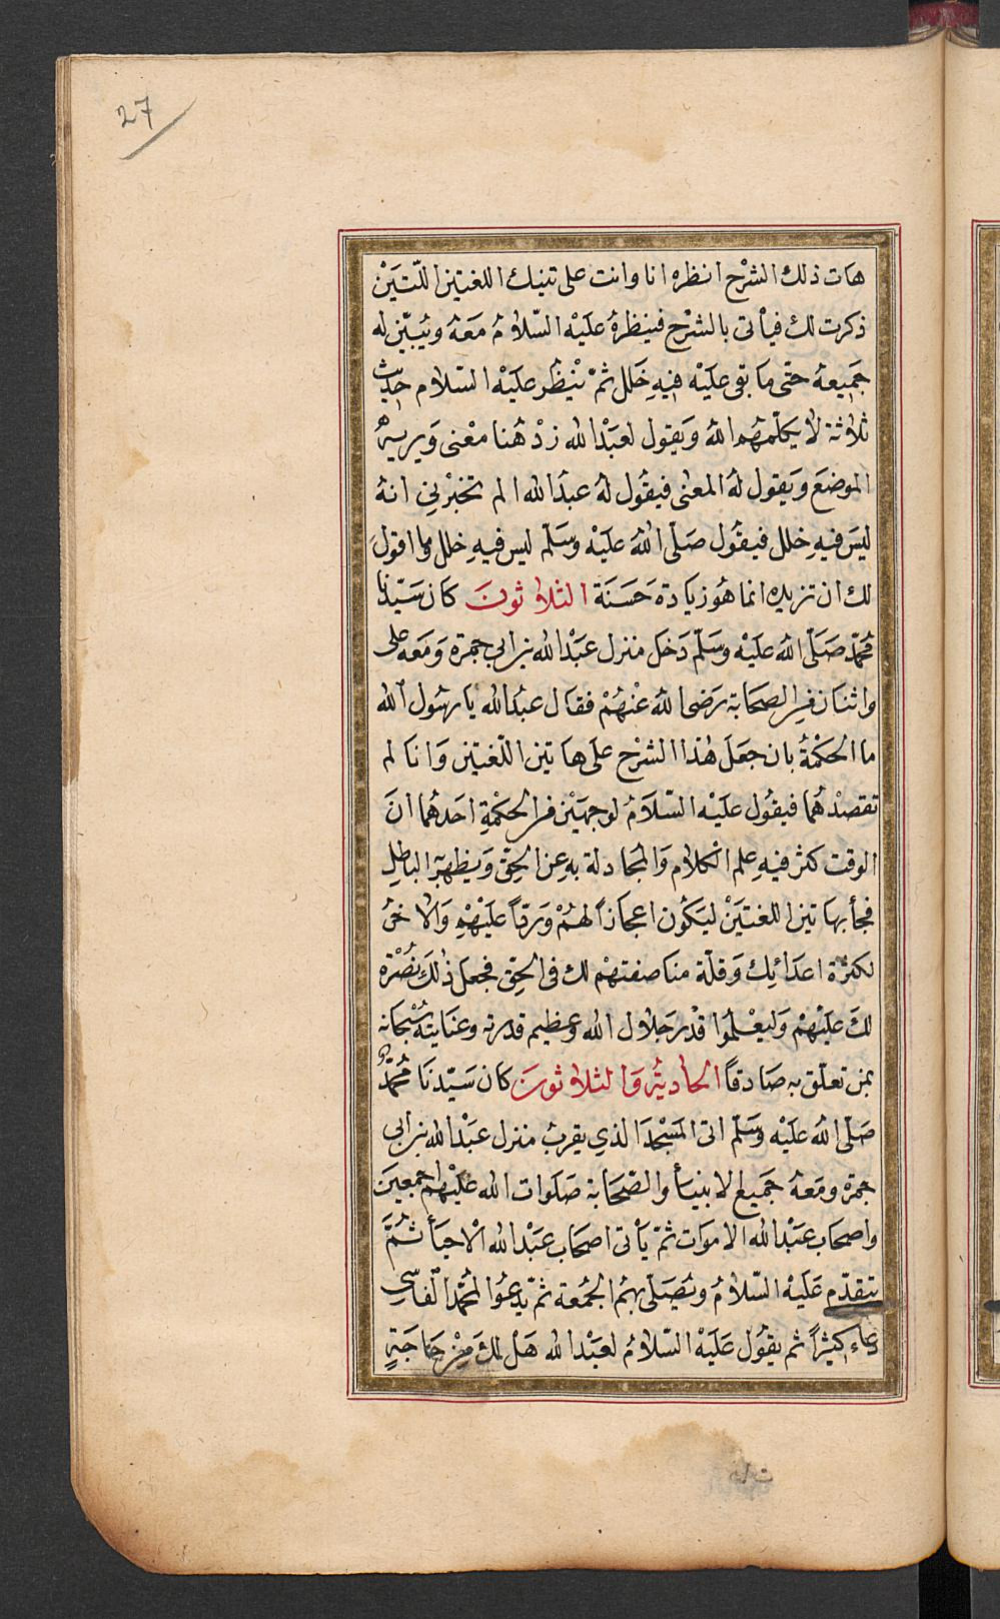 27
هَات ذلك الشرْح انظره انا وانت على تينك اللغتين اللّتَيْن
ذكرت لك فيأتى بالشرْح فينظرهُ علَيْه السّلامُ مَعَهُ ويُبيّن له
جَميعهُ حتّى مَا بقى علَيْه فيهِ خَلل ثمّ يَنْظر علَيْه السّلام حديث
ثلاثة لا يكلّمهُم اللهُ وَيقول لعَبْد الله زدْ هُنا معْنى وَيريه
الموضعَ وَيقول لهُ المعنى فيقُول لهُ عبدُ الله الم تخبرْنى انهُ
ليسَ فيهِ خلل فيقُول صَلّى اللهُ علَيْه وسَلّم ليس فيهِ خلل وما اقولُ
لك ان تزيده انما هُوَ زيَادة حَسَنَة الثلاثونَ كان سَيّدنا
محمّد صَلّى اللهُ علَيْه وسَلّم دَخل منزل عَبْد الله بن ابى جمرة وَمَعه على
واثنان من الصحَابة رَضى اللهُ عنْهُمْ فقال عبدُ الله يا رسُول الله
ما الحكْمةُ بان جعَلَ هٰذا الشرْح علَى هاتين اللّغتين وَانا لم
تقصدْهُما فيقُول علَيْه السّلامُ لوجهيْن من الحكْمةِ احَدهُما انَّ
الوقت كثر فيهِ علم الكلام وَالمجادلة بهِ عن الحقّ وَيظهر الباطل
فجأ بهاتين اللغتَيْن ليَكُون اعجازاً لهُمْ وَردّاً علَيْهمْ وَالاخرُ
لكثرَة اعدَائِك وَقلّة مناصفتهمْ لك فى الحقّ فجعلَ ذلكَ نُصْرَة
لكَ علَيْهمْ وَليعْلمُوا قدْر جَلال الله وعظيم قدرته وعنايته سُبْحانه
بمن تعلّق به صَادقاً الحادية وَالثلاثونَ كان سَيّدنَا محمّد
صَلّى اللهُ علَيْه وسَلّم اتى المَسْجدَ الذي يقربُ منزل عَبْد الله بن ابى
جمرة ومَعهُ جَميع الانبيأ والصّحَابة صَلَوات الله علَيْهم اجمعينَ
واصحَاب عَبْد الله الاموَات ثمّ يَأتى اصحَاب عَبْد الله الْاحيَأ ثمّ
يتقدّم عَليْه السّلامُ ويُصَلّى بهُمُ الجُمعة ثمّ يَدعُوا لمحمّد الفاسى
دعاء كثيْراً ثم يقُول علَيْه السّلامُ لعَبْد الله هَلْ لكَ منْ حَاجَةٍ